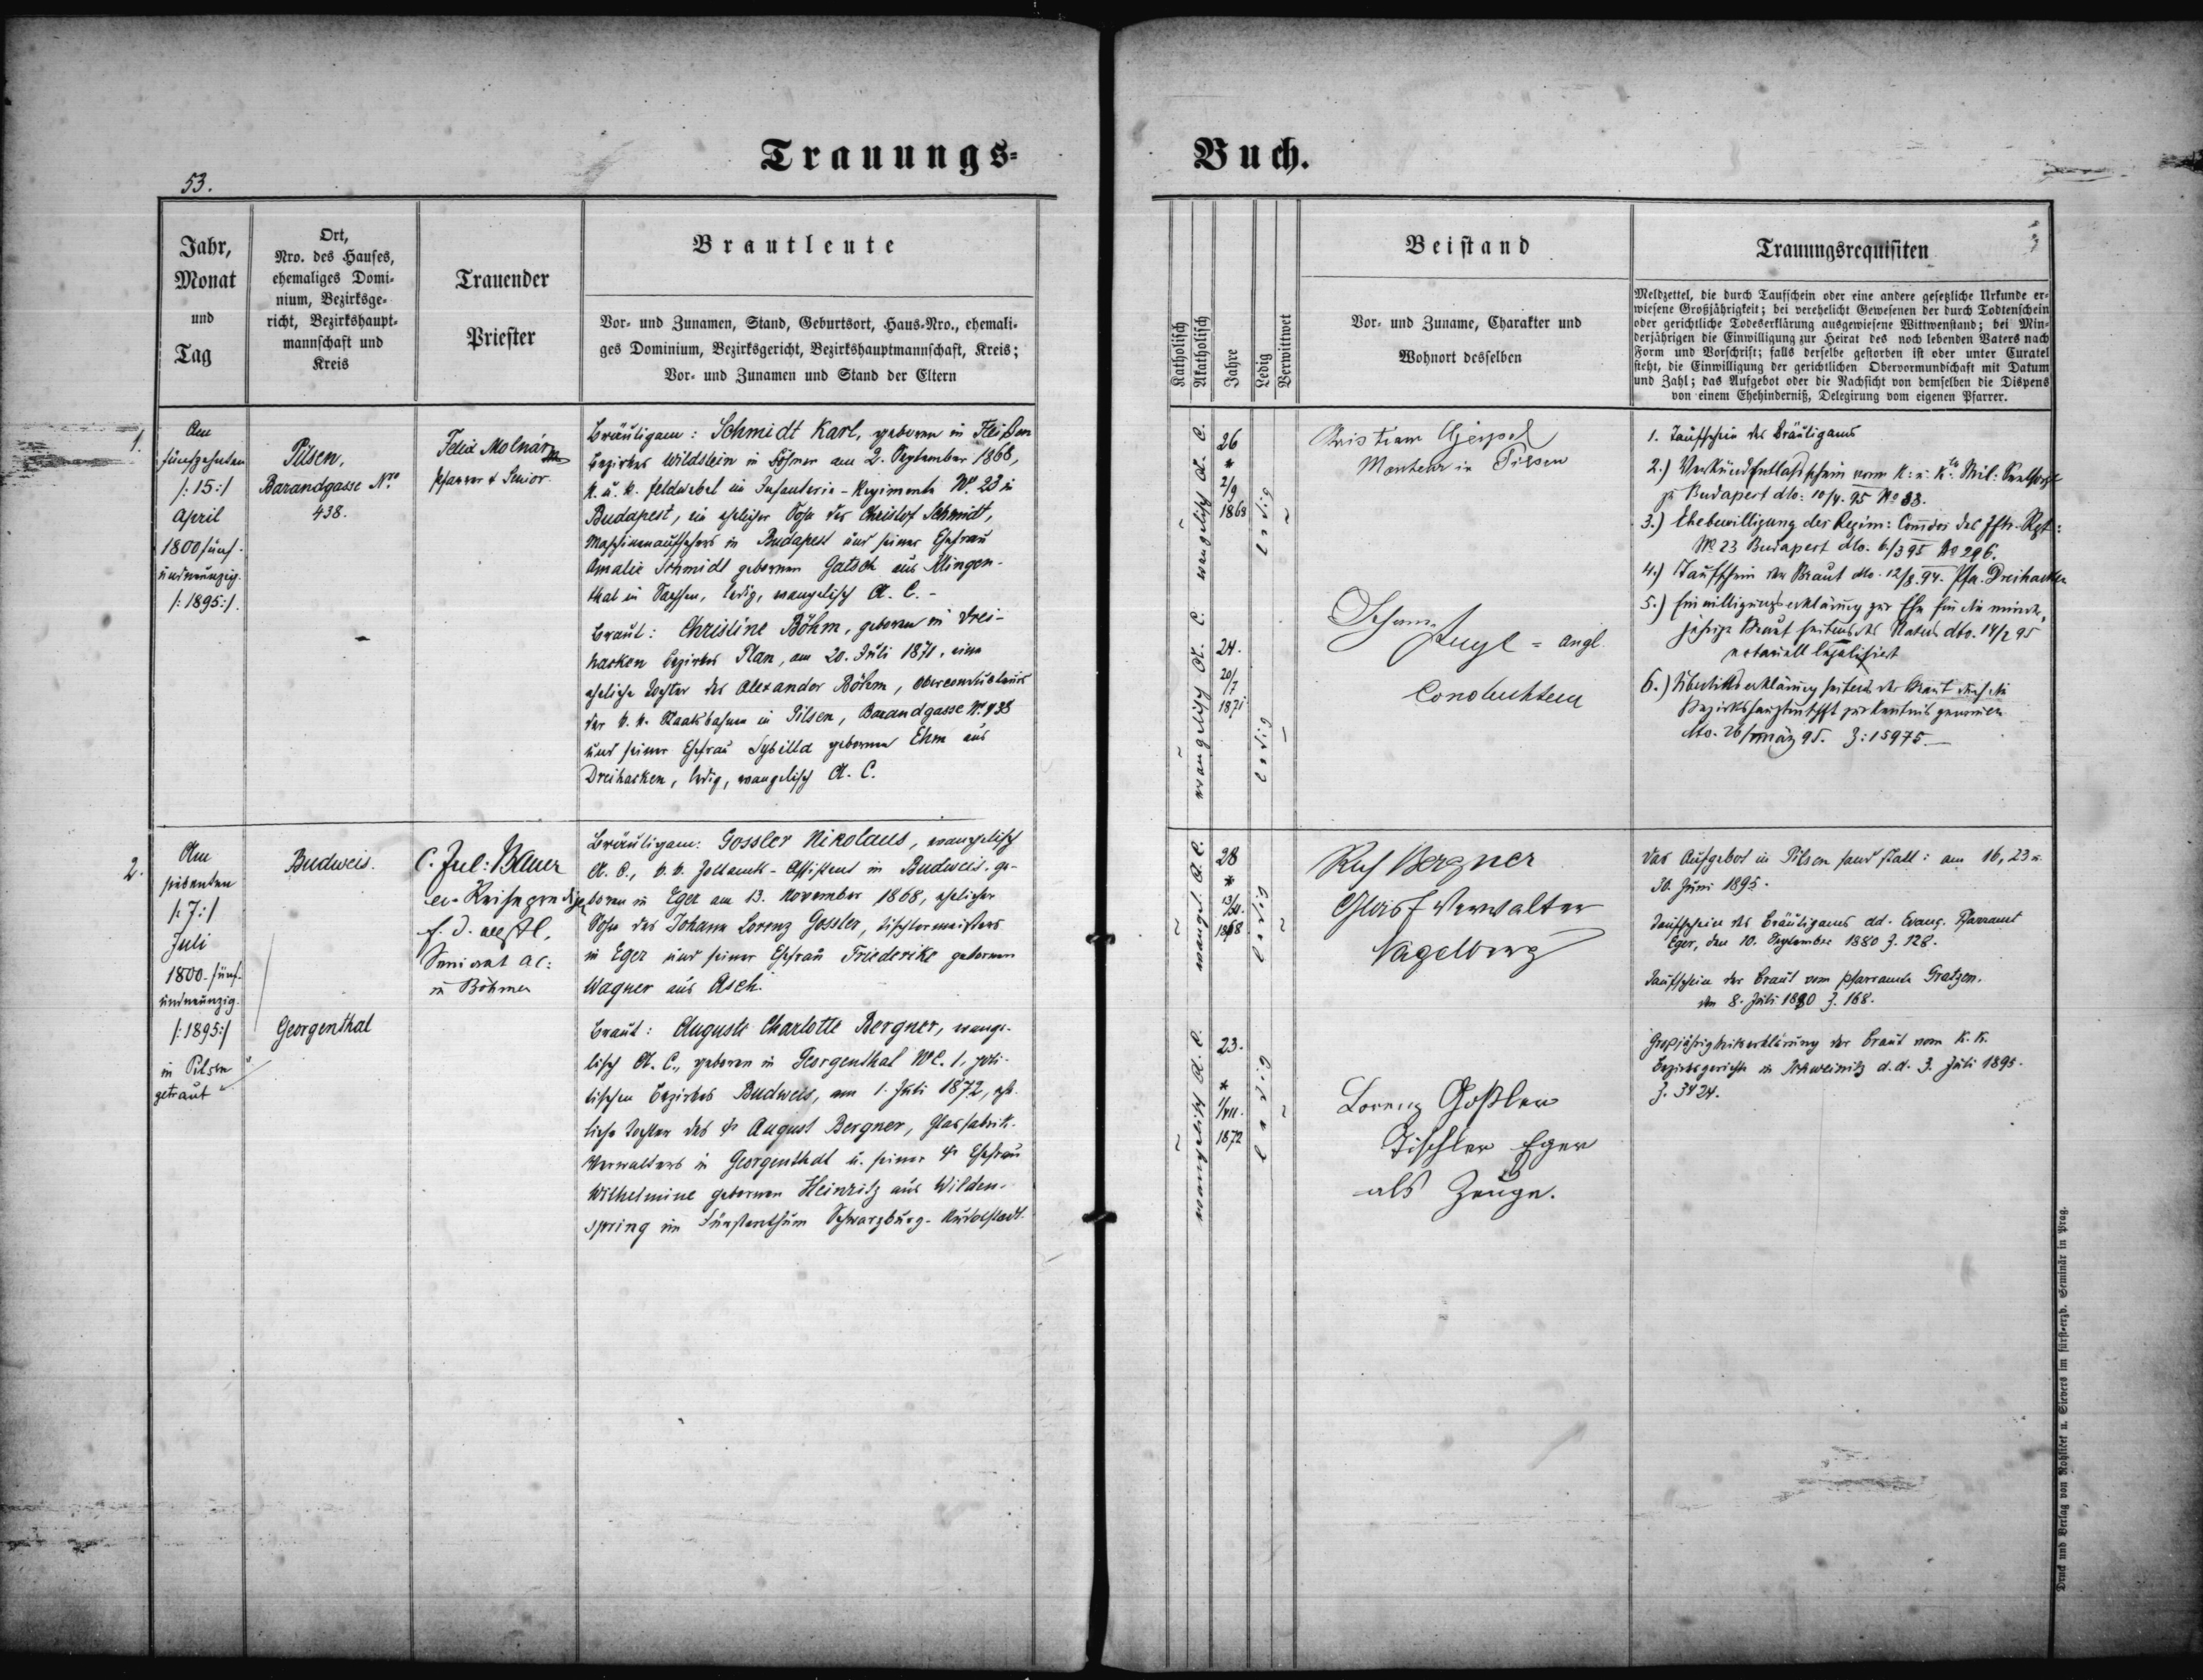 Trauungs-
Buch.
53.
Jahr,
Monat
und
Tag
Ort,
Nro. des Hauses,
ehemaliges Domi-
nium, Bezirksge-
richt, Bezirkshaupt-
mannschaft und
Kreis
Trauender
Priester
Brautleute
Vor- und Zunamen, Stand, Geburtsort, Haus-Nro., ehemali-
ges Dominium, Bezirksgericht, Bezirkshauptmannschaft, Kreis;
Vor- und Zunamen und Stand der Eltern
Katholisch
Akatholisch
Jahre
Ledig
Verwittwet
Beistand
Vor- und Zuname, Charakter und
Wohnort desselben
Trauungsrequisiten
Meldzettel, die durch Taufschein oder eine andere gesetzliche Urkunde er-
wiesene Großjährigkeit; bei verehelicht Gewesenen der durch Todtenschein
oder gerichtliche Todeserklärung ausgewiesene Wittwenstand; bei Min-
derjährigen die Einwilligung zur Heirat des noch lebenden Vaters nach
Form und Vorschrift; falls derselbe gestorben ist oder unter Curatel
steht, die Einwilligung der gerichtlichen Obervormundschaft mit Datum
und Zahl; das Aufgebot oder die Nachsicht von demselben die Dispens
von einem Ehehinderniß, Delegirung vom eigenen Pfarrer.
1.
Am
fünfzehnten
/:15:/
April
1800 fünf-
undneunzig.
/:1895:/.
Pilsen,
Barandgasse Nro
438.
Felix Molnár
Pfarrer & Senior.
Bräutigam: Schmidt Karl, geboren in Fleißen
Bezirkes Wildstein in Böhmen am 2. September 1868,
k. u. k. Feldwebel im Infanterie-Regimente No. 23 in
Budapest, ein ehelicher Sohn des Christof Schmidt,
Maschinenaufsehers in Budapest und seiner Ehefrau
Amalie Schmidt gebornen Gatsch aus Klingen-
thal in Sachsen, ledig, evangelisch A. C. -
Braut: Christine Böhm, geboren in Drei-
hacken Bezirkes Plan, am 20. Juli 1871, eine
eheliche Tochter des Alexander Böhm, Oberconducteurs
der k. k. Staatsbahnen in Pilsen, Barandgasse No. 438
und seiner Ehefrau Sybilla gebornen Ehm aus
Dreihacken, ledig, evangelisch A. C.
evangelisch A. C.
26
*
2/9
1868
ledig
evangelisch A. C.
24.
20/7
1871
ledig
Monteur in Pilsen
1. Taufschein des Bräutigams
2.) Verkündentlaßschein vom K: u: K:
zu Budapest dto: 10/4. 95 No 83.
3.) Ehebewilligung des Regim: Comdos des Inftr. Rgt:
No 23 Budapest dto. 6./3 95 No 296.
4.) Taufschein der Braut dto. 12/8. 94. Pfa. Dreihacken
5.) Einwilligungserklärung zur Ehe für die minder-
jährige Braut seitens des Vaters dto. 14/2 95
notariell legalisiert
6.) Übertrittserklärung seitens der Braut durch die
zur Kentnis genomen
dto. 26/märz 95. Z: 15975.
2.
Am
siebenten
/:7:/
Juli
1800-fünf-
undneunzig.
/:1895:/
in Pilsen
getraut
Budweis.
Georgenthal
C. Jul: Bauer
ev. Reiseprediger
Seniorat AC:
in Böhmen
Bräutigam: Gossler Nikolaus, evangelisch
A. C., k. k. Zollamts-Assistent in Budweis, ge-
boren in Eger am 13. November 1868, ehelicher
Sohn des Johann Lorenz Gossler, Tischlermeisters
in Eger und seiner Ehefrau Friederike gebornen
Wagner aus Asch.
Braut: Auguste Charlotte Bergner, evange-
lisch A. C., geboren in Georgenthal NC. 1, poli-
tischen Bezirkes Budweis, am 1. Juli 1872, ehe-
liche Tochter des August Bergner, Glasfabrik-
Verwalters in Georgenthal u. seiner Ehefrau
Wilhelmine gebornen Heinritz aus Wilden-
spring im Fürstenthum Schwarzburg-Rudolstadt.
evangel. A. C.
28
*
1868
ledig
evangelisch A. C.
23.
*
1/VII.
1872
ledig
Bergner
Verwalter
Nagelberg
Lorenz Goßler
Tischler Eger
als Zeuge.
Das Aufgebot in Pilsen fand statt: am 16, 23 u.
30. Juni 1895.
Taufschein des Bräutigams dd. Evang. Pfarramt
Eger, den 10. September 1880 Z. 128.
Taufschein der Braut vom Pfarramte Gratzen.
den 8. Juli 1880 Z. 168.
Großjährigkeitserklärung der Braut vom K. K.
Bezirksgerichte in Schweinitz d. d. 3. Juli 1895.
Z. 3424.
Druck und Verlag von Rohlicek u. Sievers im fürst-erzb. Seminär in Prag.